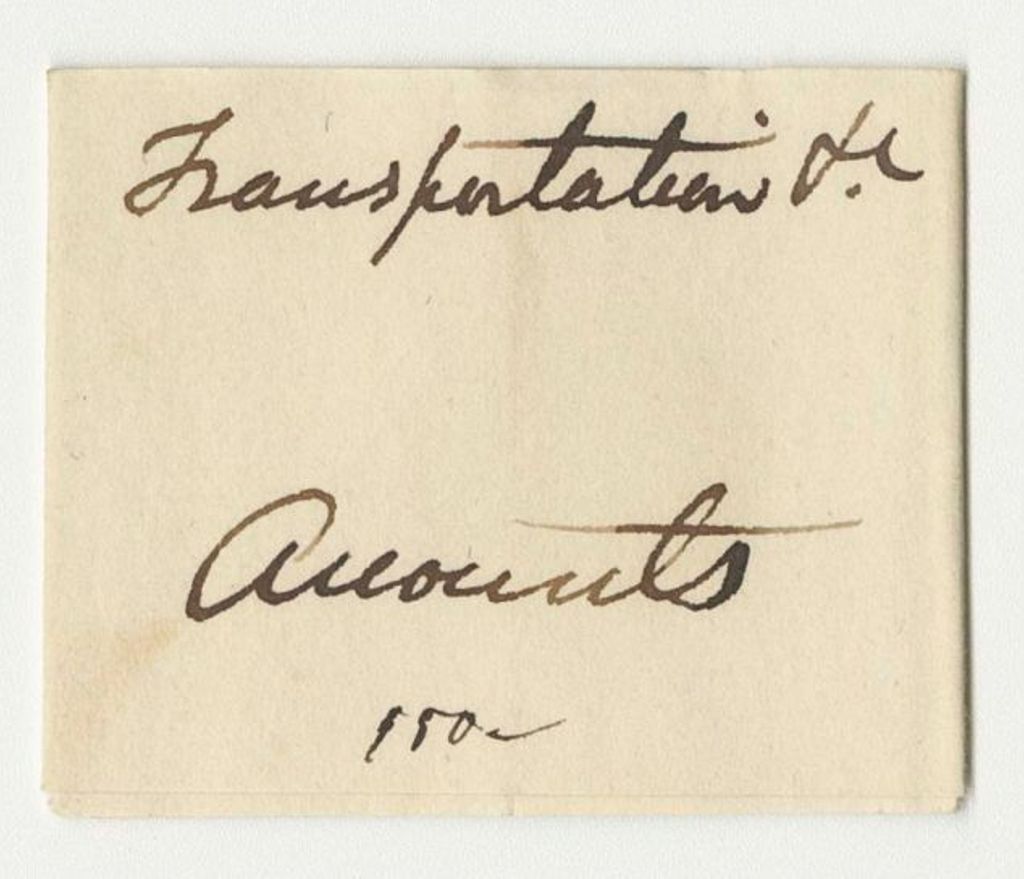 Transportation &c
Accounts
150-